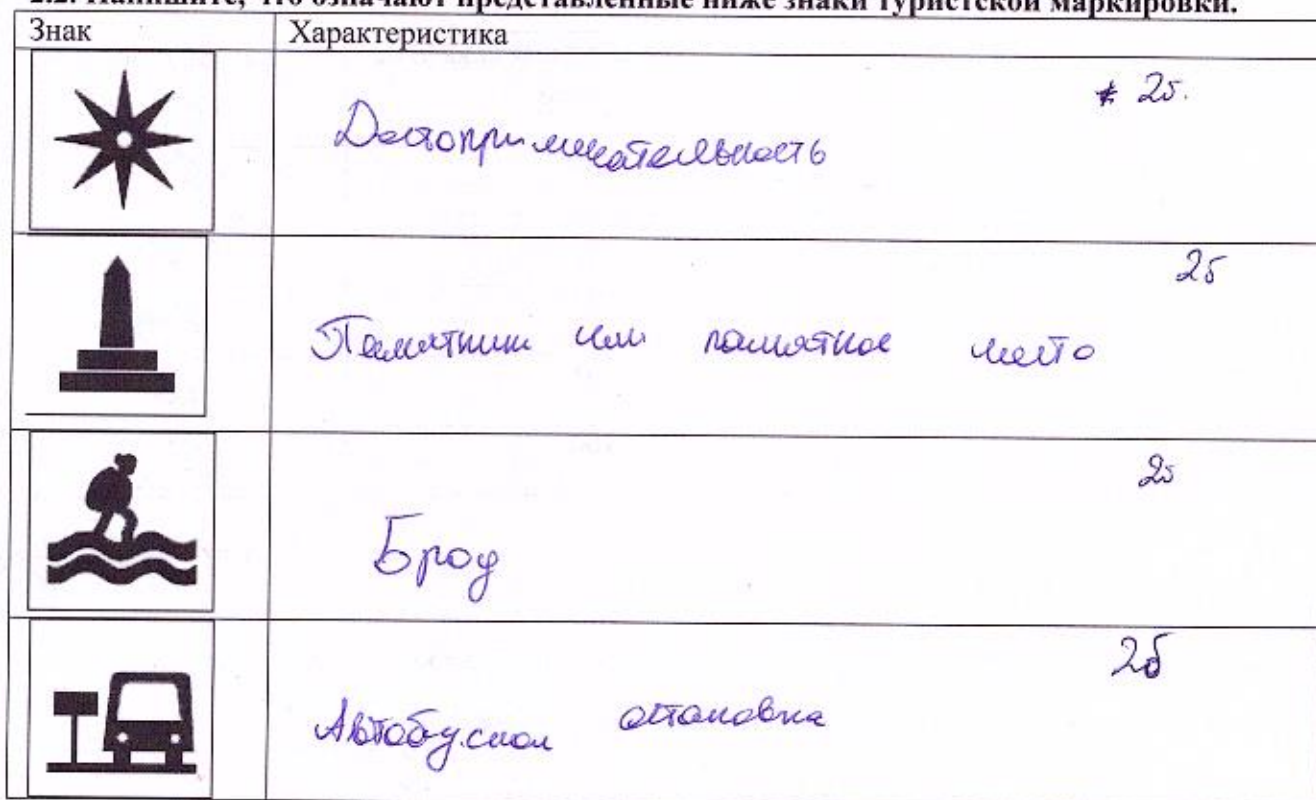 2.2. Напишите, что означают представленные ниже знаки туристской маркировки.
Знак Характеристика
2б.
Достопримечательность
2б
Памятник или памятное место
2б
Брод
2б
Автобусная остановка